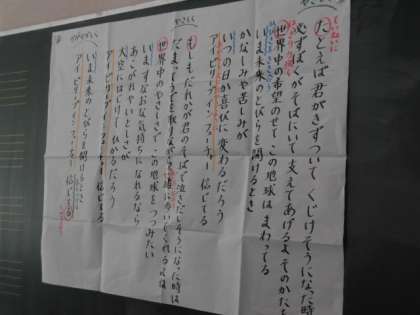 たとえば君がきずついて くじけそうになった時
必ずぼくがそばにいて 支えてあげるよ そのかた
世界中の希望のせて この地球はまわってる
いま未来のとびらを開けるとき
かなしみや苦しみが
いつの日か喜びに変わるだろう
アイビリーブインフューチャー 信じてる
やさしく
もしもだれかが君のそばで 泣きだしそうになった時は
だまってうでを取りながら
世界中のやさしさで この地球をつつみたい
いま すなおな気持ちになれるなら
あこがれやいとしさが
大空にはじけて ひかるだろう
アイビリーブインフューチャー 信じてる
いま未来のとびらを開けるとき
アイビリーブインフューチャー 信じてる